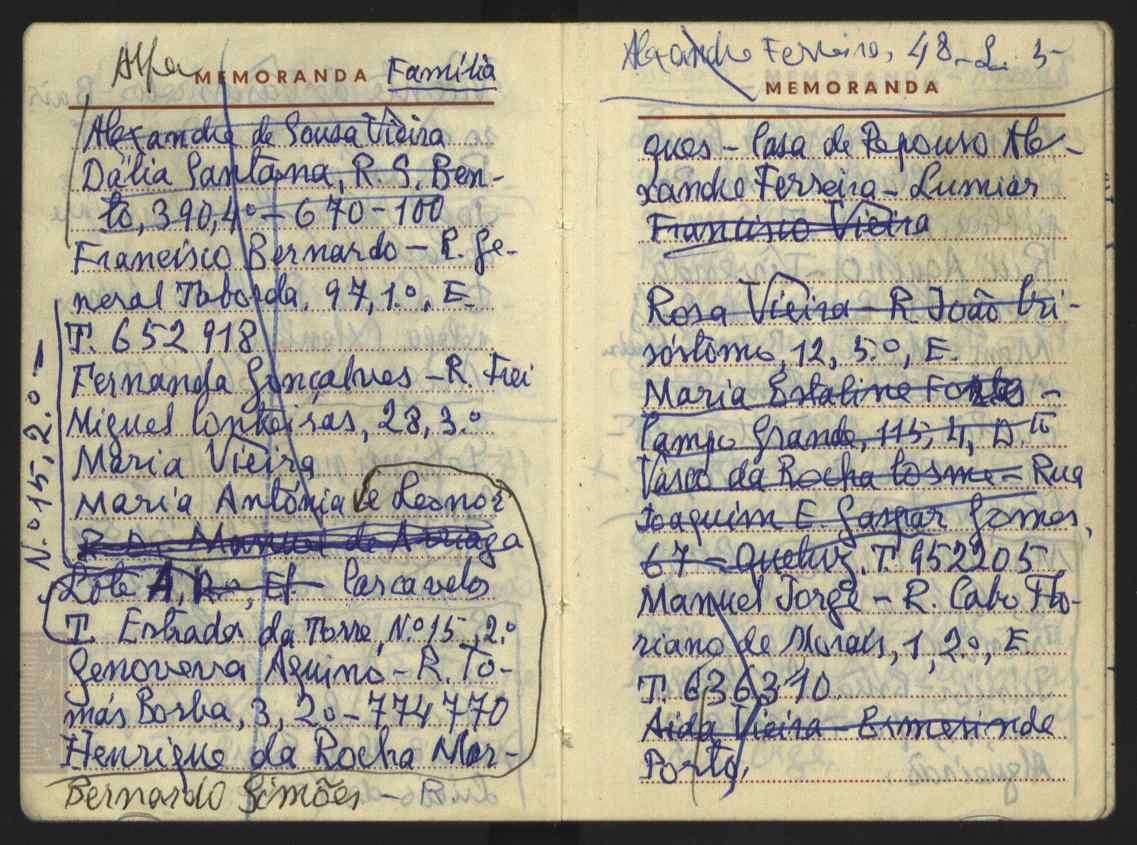 Alfa MEMORANDA Família
Alexandre de Sousa Vieira
Dália Santana, R. S. Ben-
to, 390, 4º - 670-100
Francisco Bernardo - R. Ge-
neral Taborda, 97, 1.º, E.
T. 652 918
Fernanda Gonçalves - R. Frei
Miguel Conteiras, 28, 3.º
Maria Vieira
Maria Antónia e Leonor
R. Dr. Manuel de Arriaga
Lote A, Cascavelos
T. Estrada da Torre, N.º 15, 2.º
Genoveva Aquino - R. To-
más Borba, 3, 2.º - 774 770
Henrique da Rocha Mar-
Bernardo Simões -
N.º 15, 2.º -
Alexandre Ferreira, 48-L. 3-
MEMORANDA
ques - Casa de Repouso Ale-
xandre Ferreira - Lumiar
Francisco Vieira
Rosa Vieira - R. João Cri-
sóstomo, 12, 5.º, E.
Maria Estaline Fontes -
Campo Grande, 115, 4, D.to
Vasco da Rocha Cosme - Rua
Joaquim E. Gaspar Gomes,
67 - Queluz. T. 952205
Manuel Jorge - R. Cabo Flo-
riano de Morais, 1, 2.º, E
T. 636310
Aida Vieira - Ermesinde
Porto,